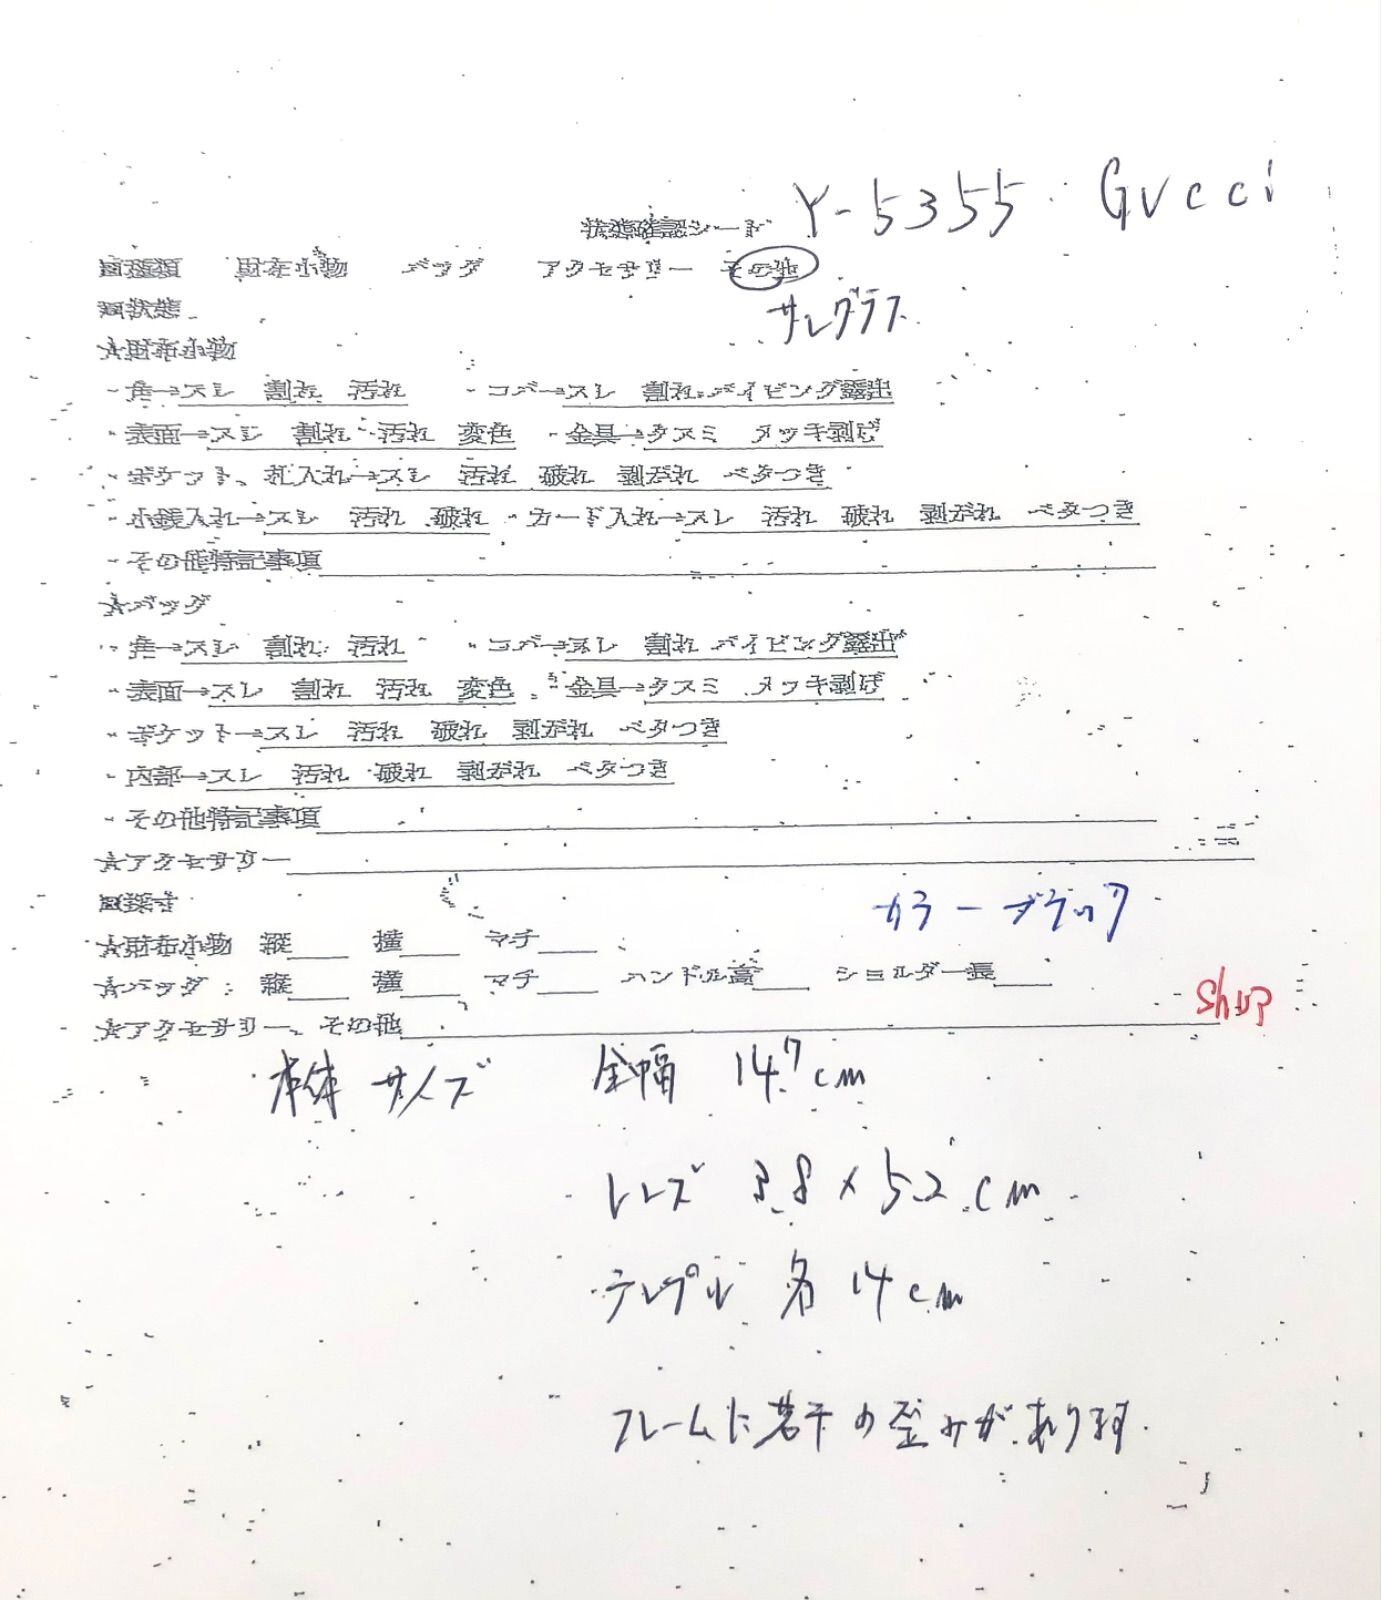 状態確認シート Y-5355 Gucci
□種類 財布小物 バッグ アクセサリー その他
サングラス
□状態
☆財布小物
・角→スレ 割れ 汚れ ・コバ→スレ 割れ パイピング露出
・表面→スレ 割れ 汚れ 変色 ・金具→クスミ メッキ剥げ
・ポケット、札入れ→スレ 汚れ 破れ 剥がれ ベタつき
・小銭入れ→スレ 汚れ 破れ ・カード入れ→スレ 汚れ 破れ 剥がれ ベタつき
・その他特記事項
☆バッグ
・角→スレ 割れ 汚れ ・コバ→スレ 割れ パイピング露出
・表面→スレ 割れ 汚れ 変色 ・金具→クスミ メッキ剥げ
・ポケット→スレ 汚れ 破れ 剥がれ ベタつき
・内部→スレ 汚れ 破れ 剥がれ ベタつき
・その他特記事項
☆アクセサリー
□採寸
カラーブラック
☆財布小物 縦 横 マチ
☆バッグ: 縦 横 マチ ハンドル高 ショルダー長
☆アクセサリー、その他
本体サイズ 全幅 14.7cm
レンズ 3.8×5.2cm
テンプル 各14cm
フレームに若干の歪みがあります.